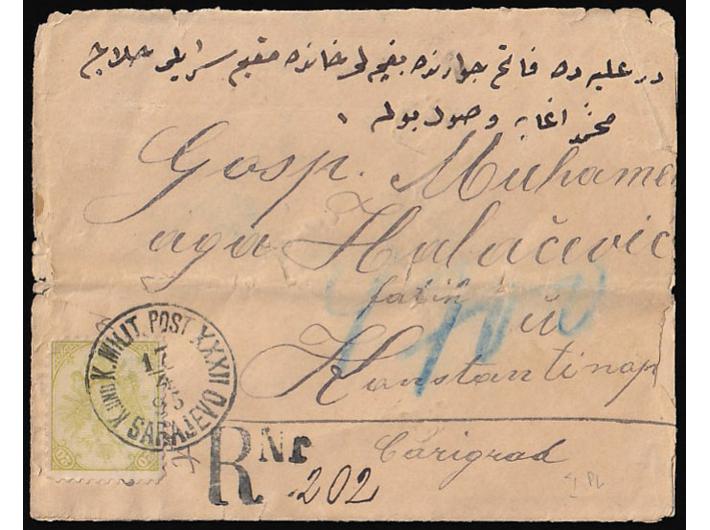 در عليه ده فاتح جوارنده مقيم سرايلى حلاج
محمد اغايه وصول بوله
Gosp. Muhame
aga Halačević
fatih
u
Konstantinop
Carigrad
K. UND K. MILIT. POST XXXII
SARAJEVO
R Nr 202